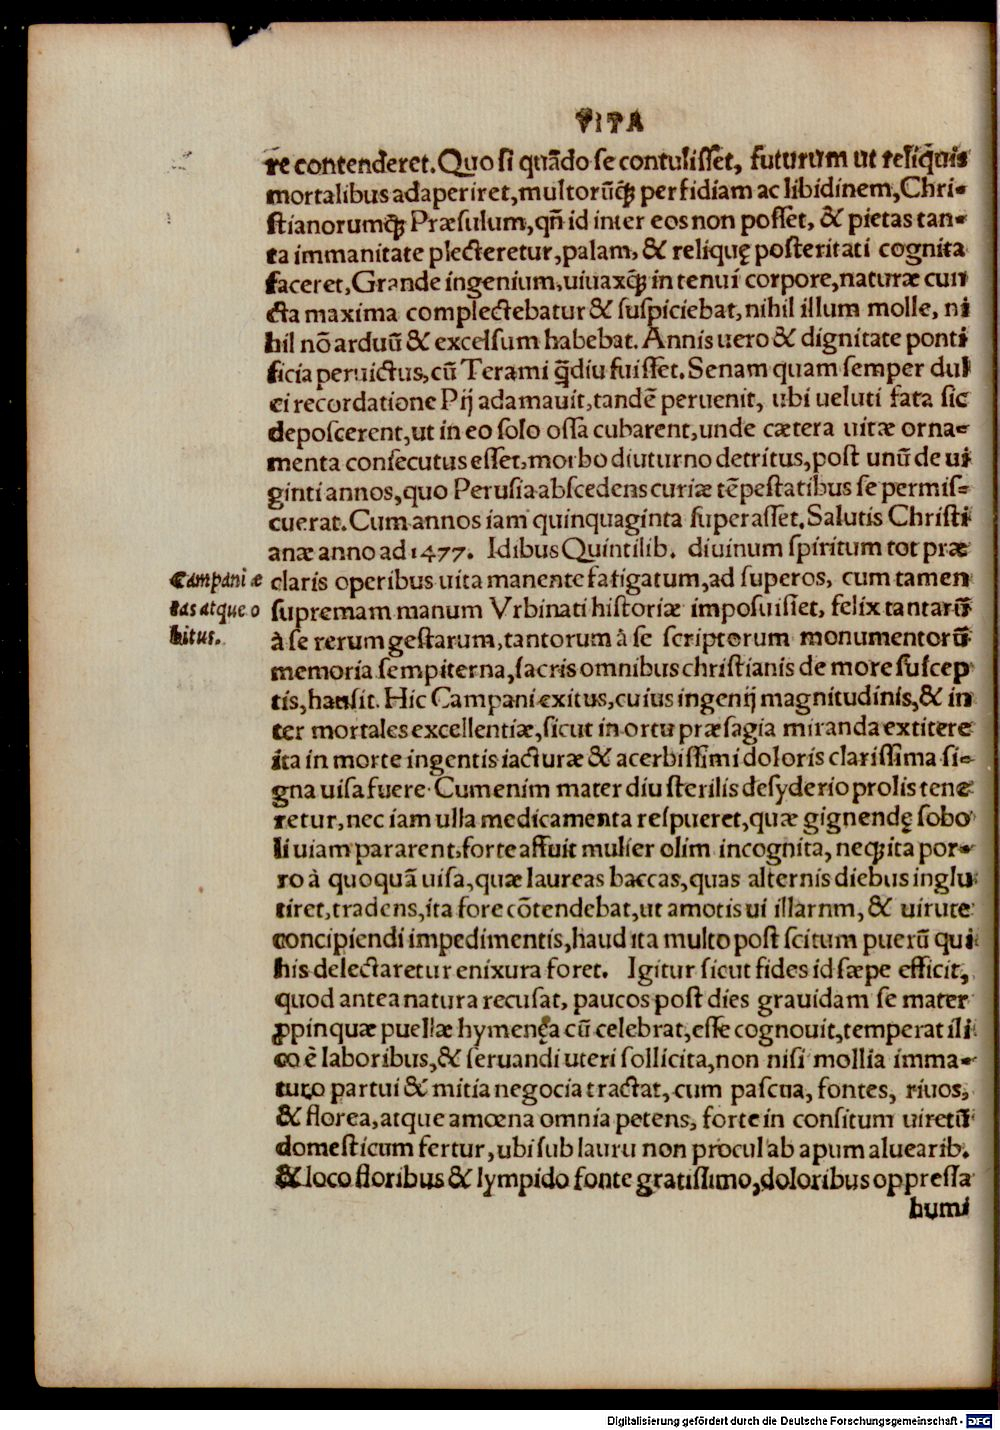 VITA
re contenderet. Quo si quãdo se contulisset, futurum ut reliquis
mortalibus adaperiret, multorũq; perfidiam ac libidinem, Chri-
stianorumq; Præsulum, qñ id inter eos non posset, & pietas tan-
ta immanitate plecteretur, palam, & reliquę posteritati cognita
faceret, Grande ingenium, uiuaxq; in tenui corpore, naturæ cun
cta maxima complectebatur & suspiciebat, nihil illum molle, ni
hil nõ arduũ & excelsum habebat. Annis uero & dignitate ponti
ficia peruictus, cũ Terami q̃diu fuisset. Senam quam semper dul
ci recordatione Pij adamauit, tandẽ peruenit, ubi ueluti fata sic
deposcerent, ut in eo solo ossa cubarent, unde cætera uitæ orna-
menta consecutus esset, morbo diuturno detritus, post unũ de ui
ginti annos, quo Perusia abscedens curiæ tẽpestatibus se permis-
cuerat. Cum annos iam quinquaginta superasset. Salutis Christi
anæ anno ad 1477. Idibus Quintilib. diuinum spiritum tot præ
Campani æ
claris operibus uita manente fatigatum, ad superos, cum tamen
tas atque o
supremam manum Vrbinati historiæ imposuisset, felix tantarũ
bitus.
à se rerum gestarum, tantorum à se scriptorum monumentorũ
memoria sempiterna, sacris omnibus christianis de more suscep
tis, hausit. Hic Campani exitus, cuius ingenij magnitudinis, & in
ter mortales excellentiæ, sicut in ortu præsagia miranda extitere
ita in morte ingentis iacturæ & acerbissimi doloris clarissima si-
gna uisa fuere. Cum enim mater diu sterilis desyderio prolis tene
retur, nec iam ulla medicamenta respueret, quæ gignendę sobo
li uiam pararent, forte affuit mulier olim incognita, neq; ita por-
ro à quoquã uisa, quæ laureas baccas, quas alternis diebus inglu
tiret, tradens, ita fore cõtendebat, ut amotis ui illarnm, & uirute
concipiendi impedimentis, haud ita multo post scitum puerũ qui
his delectaretur enixura foret. Igitur sicut fides id sæpe efficit,
quod antea natura recusat, paucos post dies grauidam se mater
ꝓpinquæ puellæ hymenęa cũ celebrat, esse cognouit, temperat ili
co è laboribus, & seruandi uteri sollicita, non nisi mollia imma-
turo partui & mitia negocia tractat, cum pascua, fontes, riuos,
& florea, atque amœna omnia petens, forte in consitum uiretũ
domesticum fertur, ubi sub lauru non procul ab apum aluearib.
& loco floribus & lympido fonte gratissimo, doloribus oppressa
humi
Digitalisierung gefördert durch die Deutsche Forschungsgemeinschaft - DFG